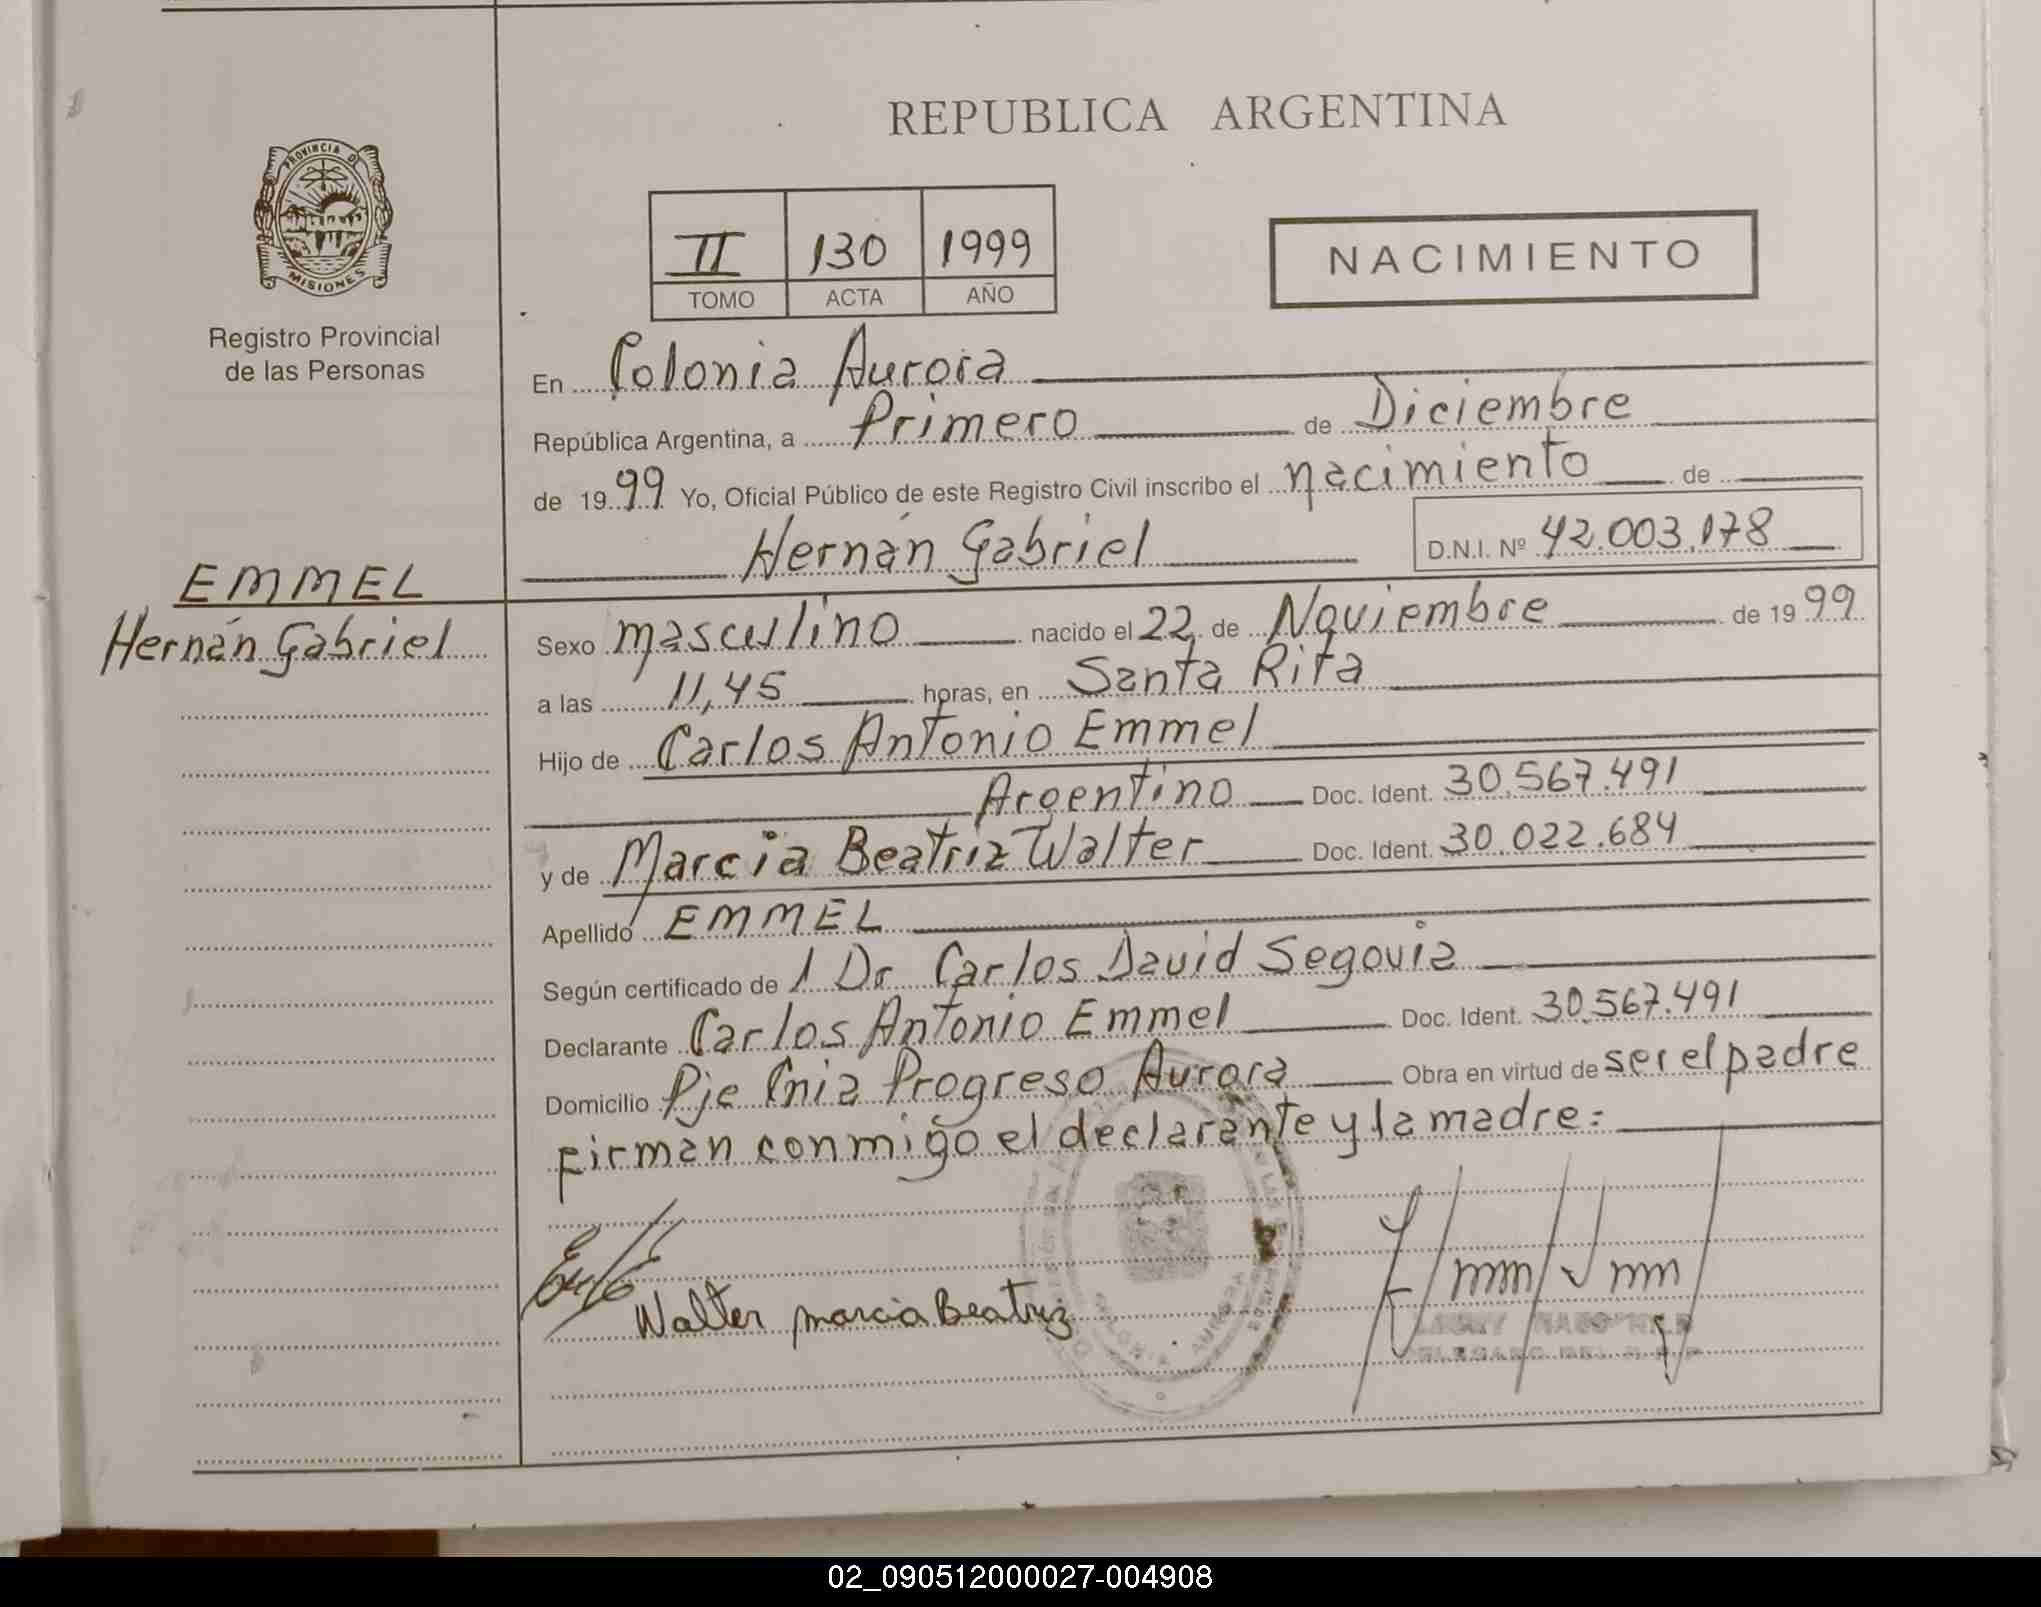 REPUBLICA ARGENTINA
PROVINCIA DE
MISIONES
Registro Provincial
de las Personas
II 130 1999
TOMO ACTA AÑO
NACIMIENTO
En Colonia Aurora
República Argentina, a Primero de Diciembre
de 1999 Yo, Oficial Público de este Registro Civil inscribo el nacimiento de
Hernán Gabriel D.N.I. Nº 42.003.178
EMMEL
Hernán Gabriel
Sexo masculino nacido el 22 de Noviembre de 1999
a las 11,45 horas, en Santa Rita
Hijo de Carlos Antonio Emmel
Argentino Doc. Ident. 30.567.491
y de Marcia Beatriz Walter Doc. Ident. 30.022.684
Apellido EMMEL
Según certificado de 1 Dr Carlos David Segovia
Declarante Carlos Antonio Emmel Doc. Ident. 30.567.491
Domicilio Pje Cnia Progreso Aurora Obra en virtud de ser el padre
firman conmigo el declarante y la madre:
Walter Marcia Beatriz
COLONIA AURORA
02_090512000027-004908